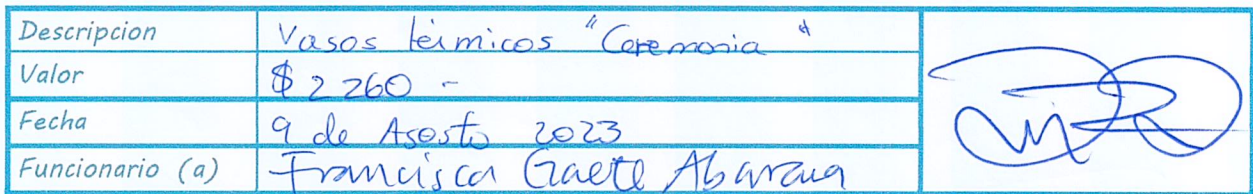 Descripcion Vasos térmicos "Ceremonia"
Valor $2260-
Fecha 9 de Agosto 2023
Funcionario (a) Francisca Gaete Abarzua